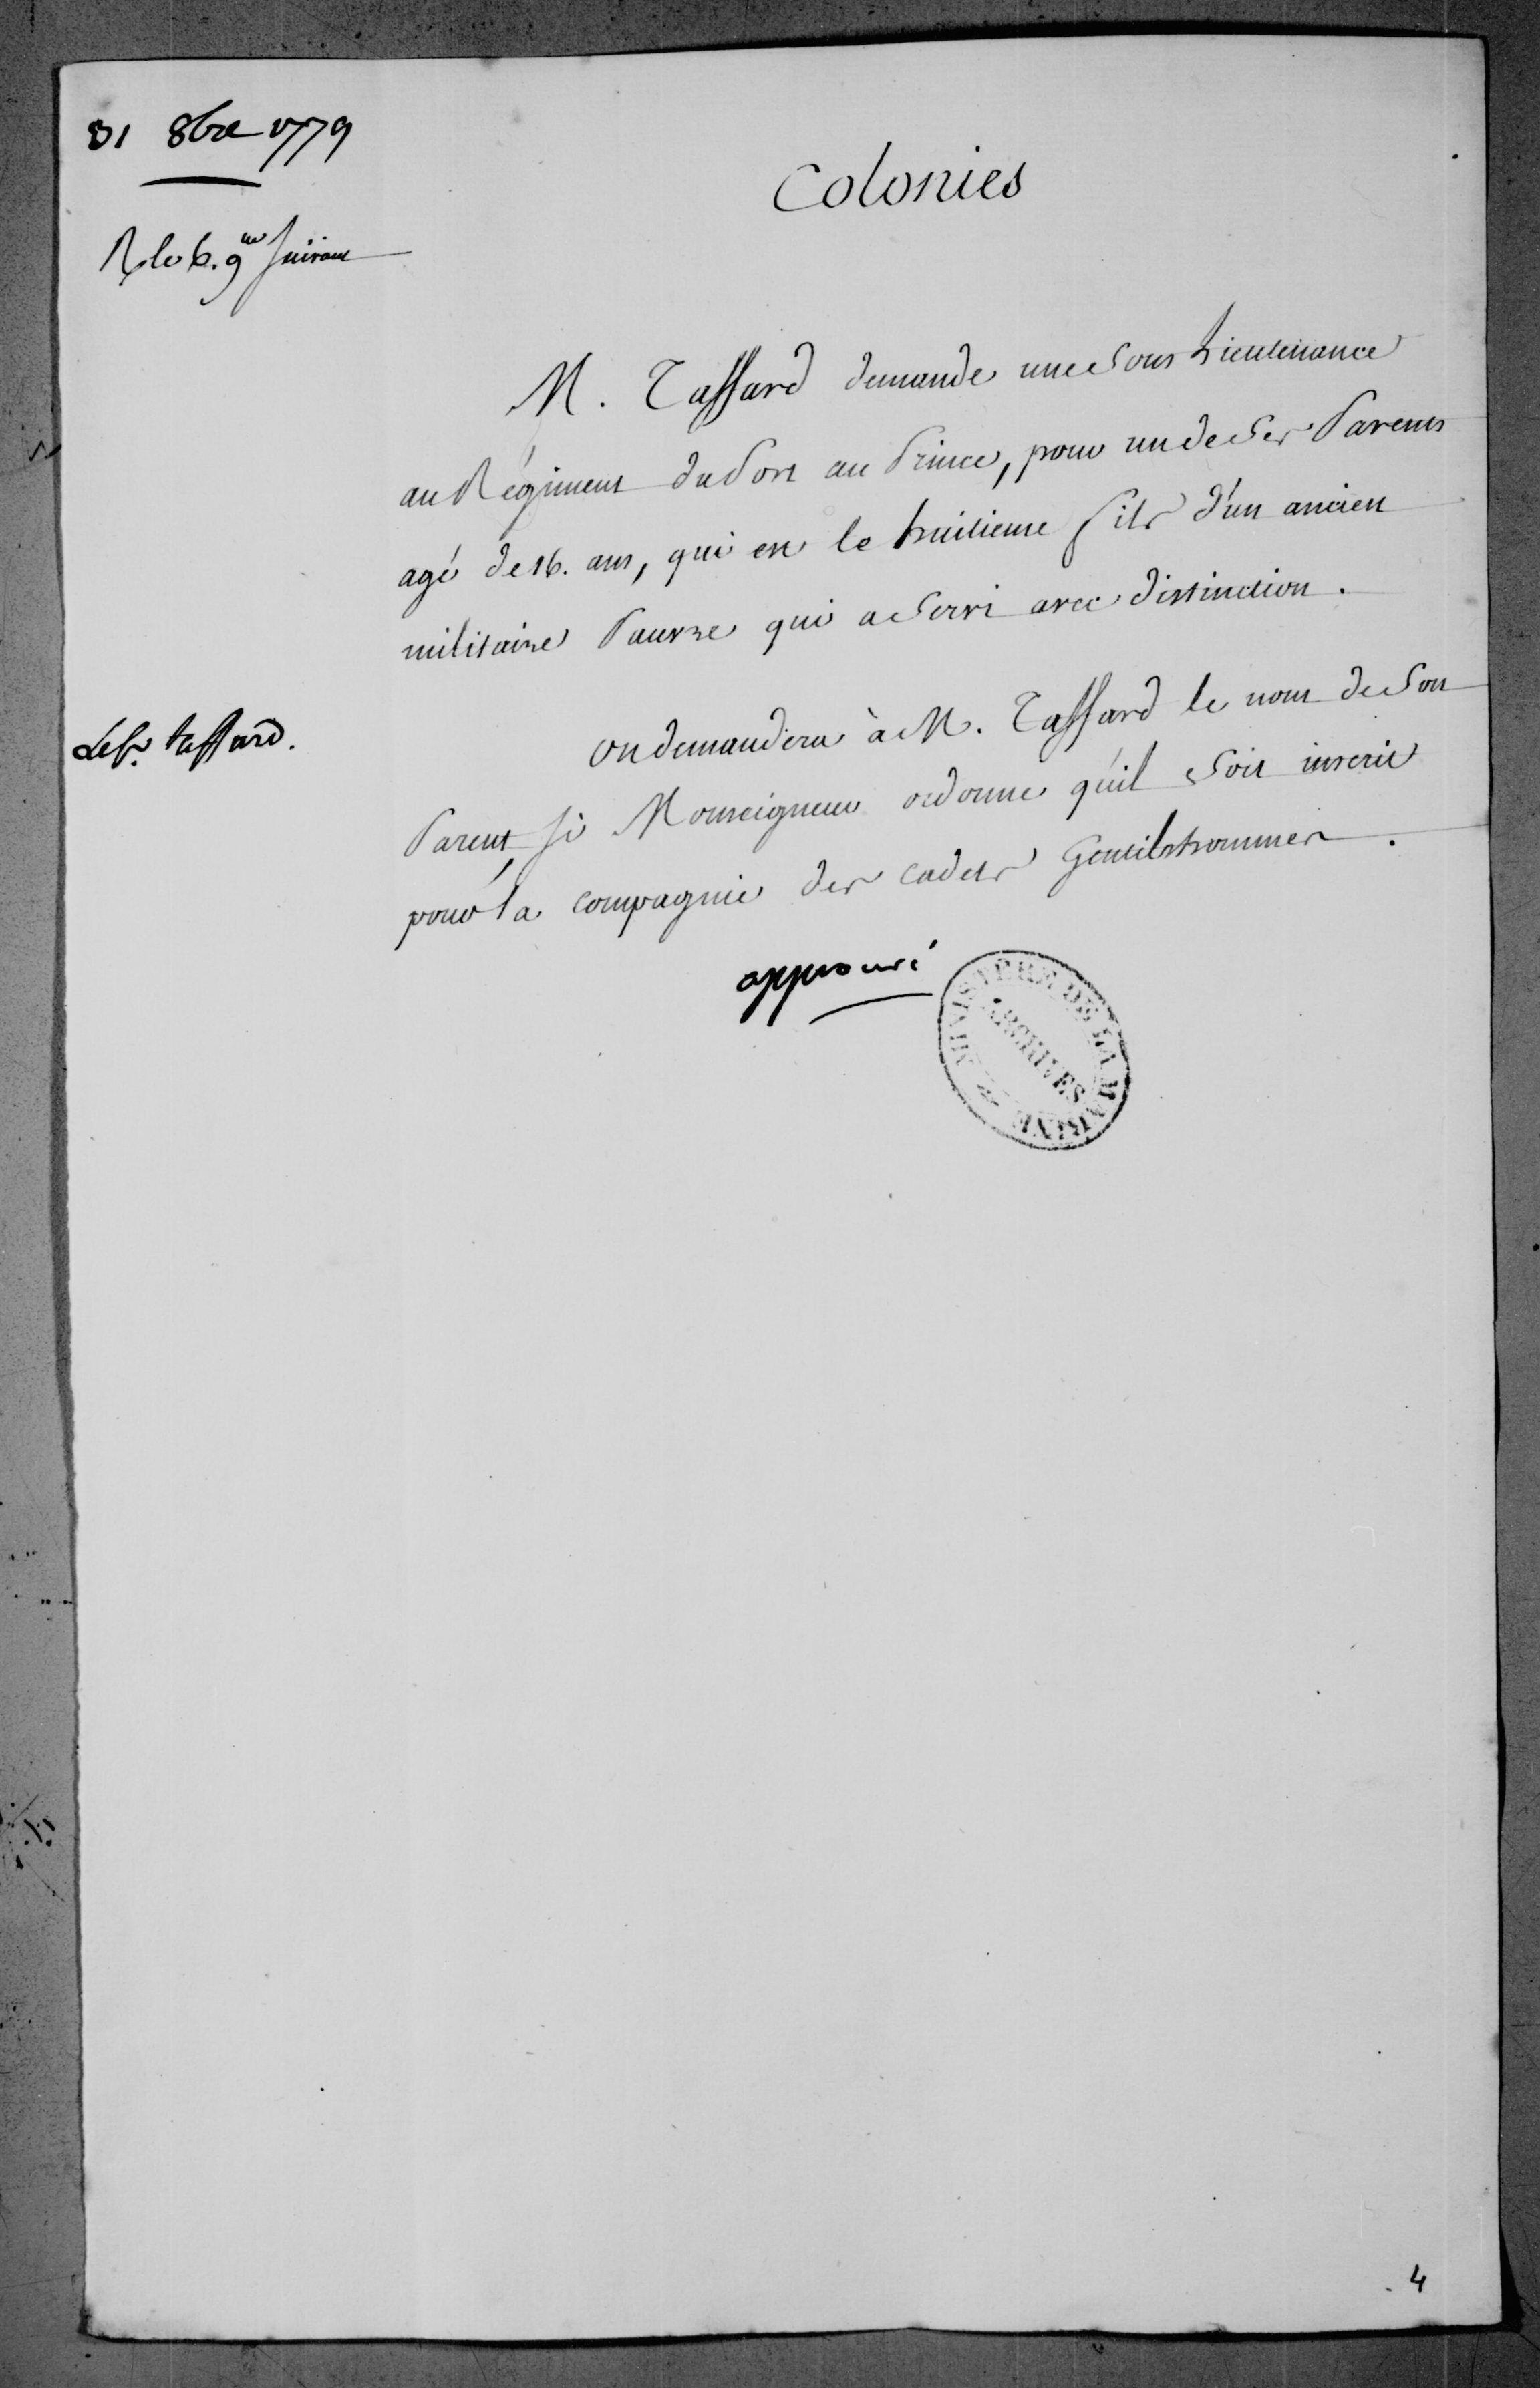 31 8bre 1779
Colonies
R le 6. 9bre suivant
M. Taffard demande une Sous Lieutenance
au Régiment du Port au Prince, pour un de Ses Parens
agé de 16. ans, qui est le huitieme fils d'un ancien
militaire Pauvre qui a Servi avec distinction.
Le Sr. taffard.
on demandera à M. Taffard le nom de Son
Parent, si Monseigneur ordonne qu'il Soit inscrit
pour la compagnie des cadets Gentilshommes.
approuvé
MINISTERE DE LA MARINE
ARCHIVES
4